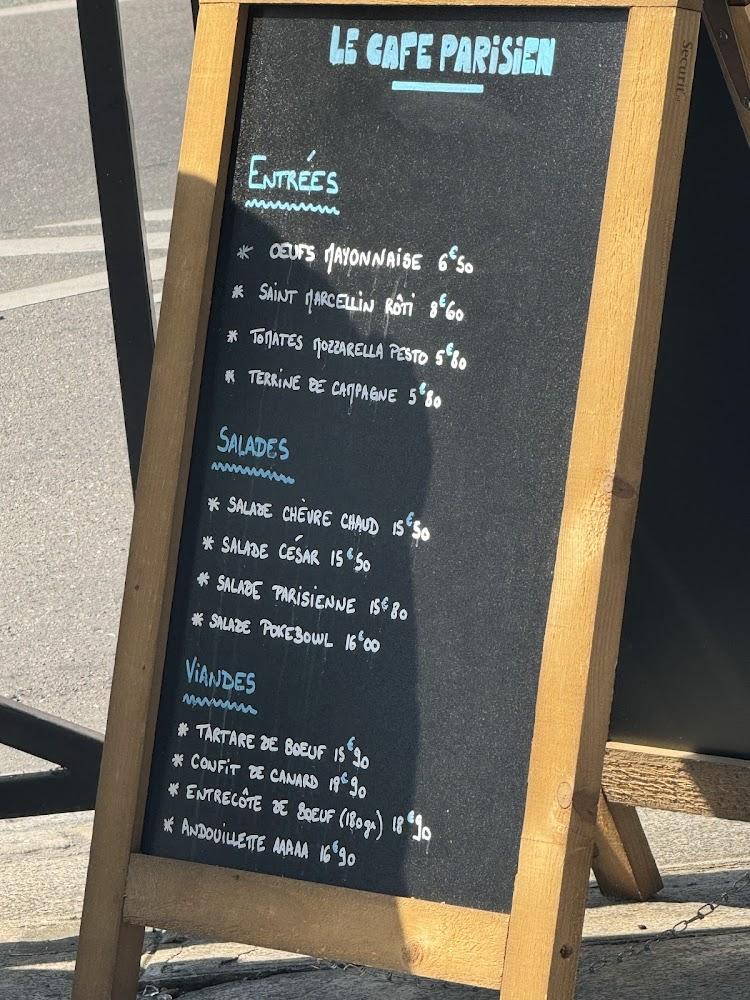 LE CAFE PARISIEN
Sécurit
ENTRÉES
* OEUFS MAYONNAISE 6€50
* SAINT MARCELLIN RÔTI 8€60
* TOMATES MOZZARELLA PESTO 5€80
* TERRINE DE CAMPAGNE 5€80
SALADES
* SALADE CHÈVRE CHAUD 15€50
* SALADE CÉSAR 15€50
* SALADE PARISIENNE 15€80
* SALADE POKEBOWL 16€00
VIANDES
* TARTARE DE BOEUF 15€90
* CONFIT DE CANARD 18€90
* ENTRECÔTE DE BOEUF (180gr) 18€90
* ANDOUILLETTE AAAAA 16€90